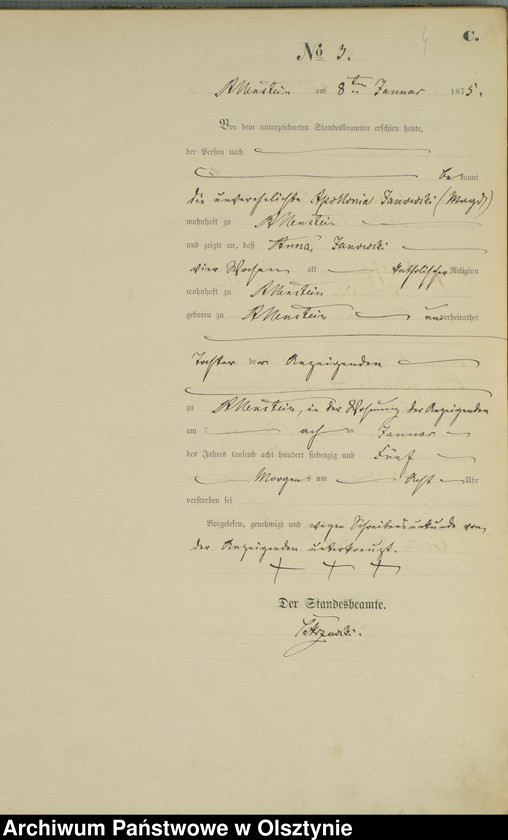 C.
No 3.
Allenstein am 8ten Januar 1875.
Vor dem unterzeichneten Standesbeamten erschien heute,
der Person nach
bekannt
die unverehelichte Apollonia Janowski (Magd)
wohnhaft zu Allenstein
und zeigte an, daß Anna Janowski
vier Wochen alt katholischer Religion
wohnhaft zu Allenstein
geboren zu Allenstein unverheirathet
Tochter der Anzeigenden
zu Allenstein, in der Wohnung der Anzeigenden
am acht Januar
des Jahres tausend acht hundert siebenzig und Fünf
Morgens um Acht Uhr
verstorben sei
Vorgelesen, genehmigt und wegen Schreibensunkunde von
der Anzeigenden unterkreuzt.
+ + +
Der Standesbeamte.
Archiwum Państwowe w Olsztynie